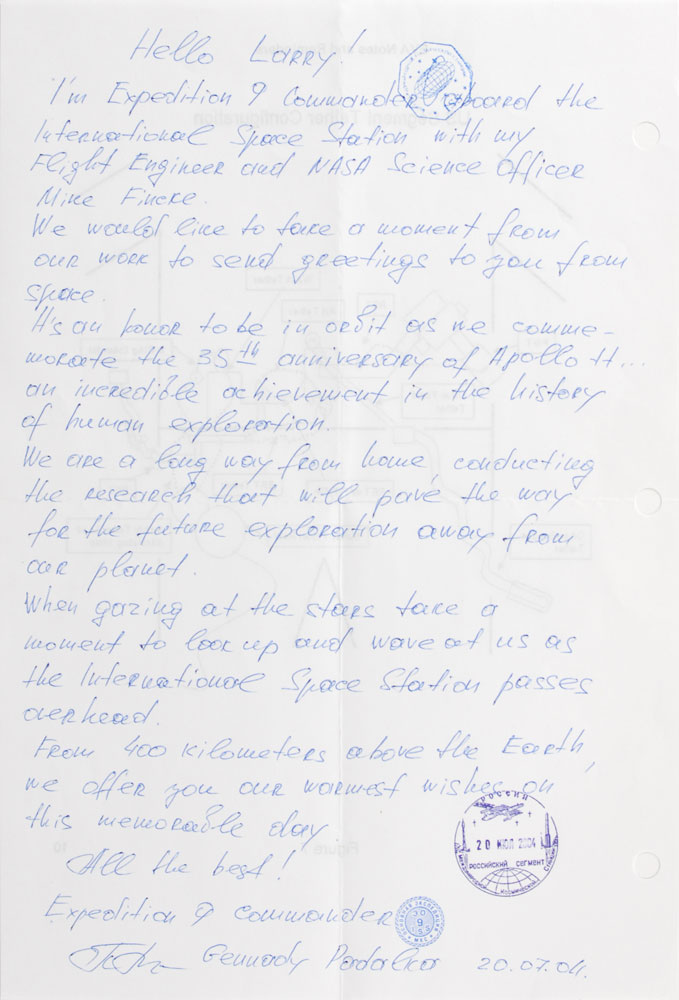 Hello Larry!
I'm Expedition 9 Commander aboard the
International Space Station with my
Flight Engineer and NASA Science Officer
Mike Fincke.
We would like to take a moment from
our work to send greetings to you from
space.
It's an honor to be in orbit as we comme-
morate the 35th anniversary of Apollo 11...
an incredible achievement in the history
of human exploration.
We are a long way from home, conducting
the research that will pave the way
for the future exploration away from
our planet.
When gazing at the stars take a
moment to look up and wave at us as
the International Space Station passes
overhead.
From 400 kilometers above the Earth,
we offer you our warmest wishes on
this memorable day.
РОССИИ
20 ИЮЛ 2004
РОССИЙСКИЙ СЕГМЕНТ
All the best!
Expedition 9 commander
9
МКС
Gennady Padalka 20.07.04.